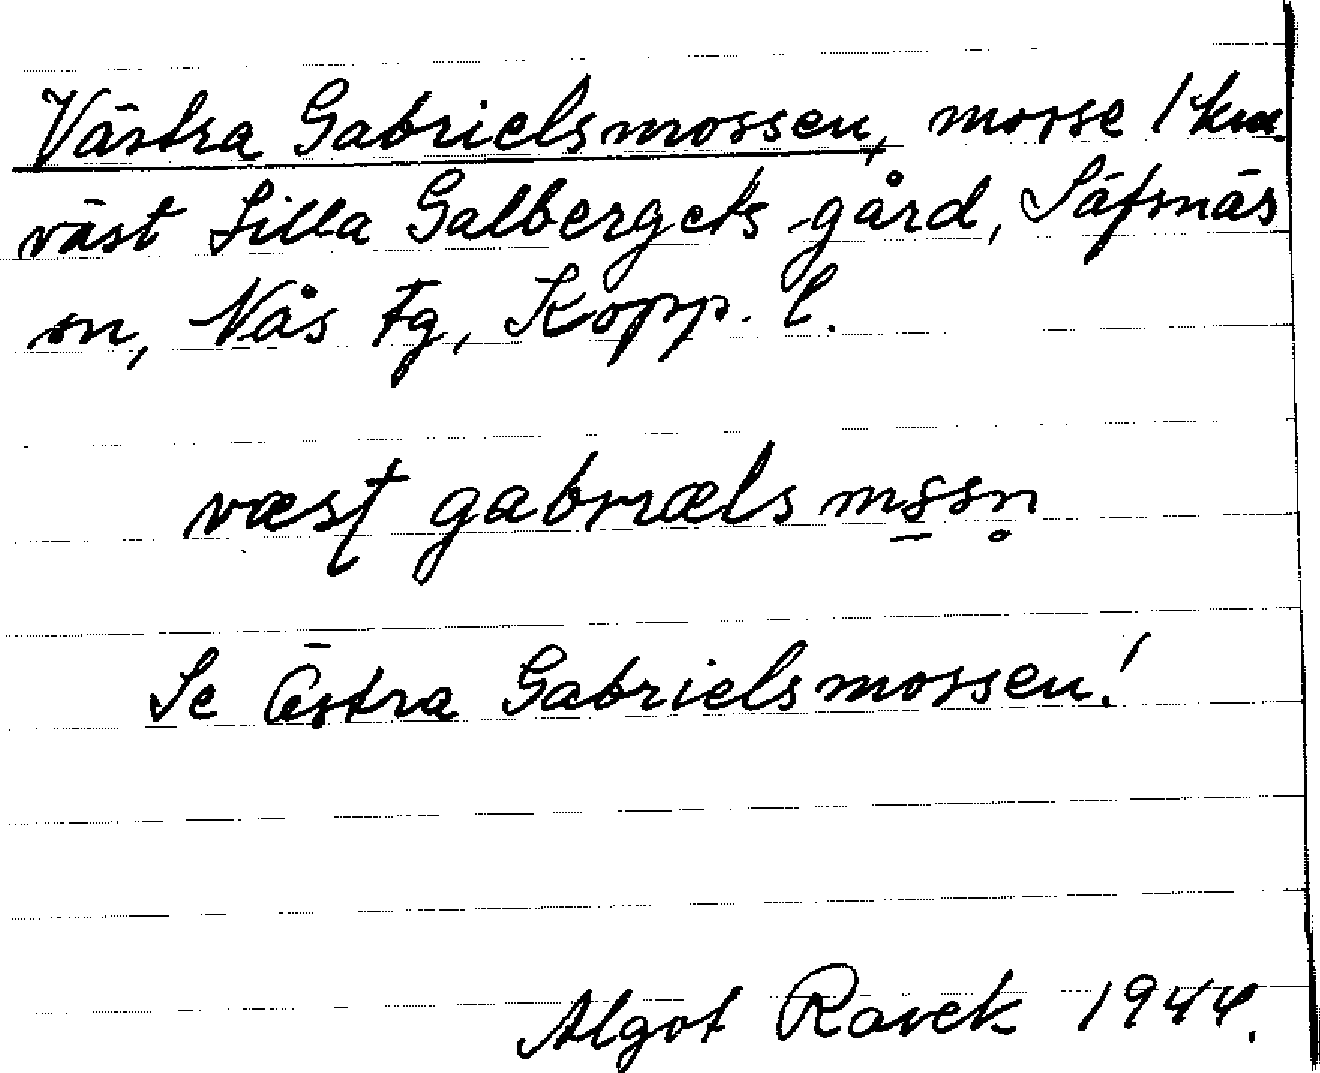 Västra Gabrielsmossen, mosse 1 km.
väst Lilla Galbergets gård, Säfsnäs
sn, Nås Fg, Kopp. l.
væst gabriæls
Se Östra Gabrielsmossen!
Algot Ravek 1944.